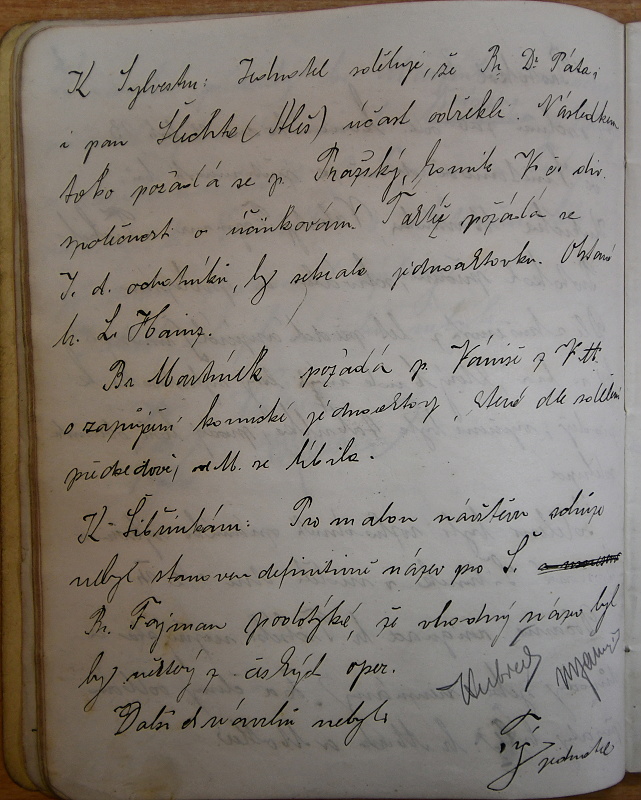 K Sylvestru: Jednatel sděluje, že Br. Dr. Páta i
i pan Šlechta (Aleš) účast odřekli. Následkem
toho požádá se p. Pražský, komik V. č. div.
společnosti o účinkování. Taktéž požádá se
J. d. ochotníků, by sehrála jednoaktovku. Obstará
br. L. Hainz.
Br Martínek požádá p. Vániše z
o zapůjčení komické jednoaktovky, které dle sdělení
předsedové, M. se líbila.
K Šibřinkám: Pro malou návštěvu schůze
nebyl stanoven definitivně název pro Š.
Br. Fajman podotýká že vhodný název byl
by některý z českých oper.
Další návrhů nebylo
jednatel